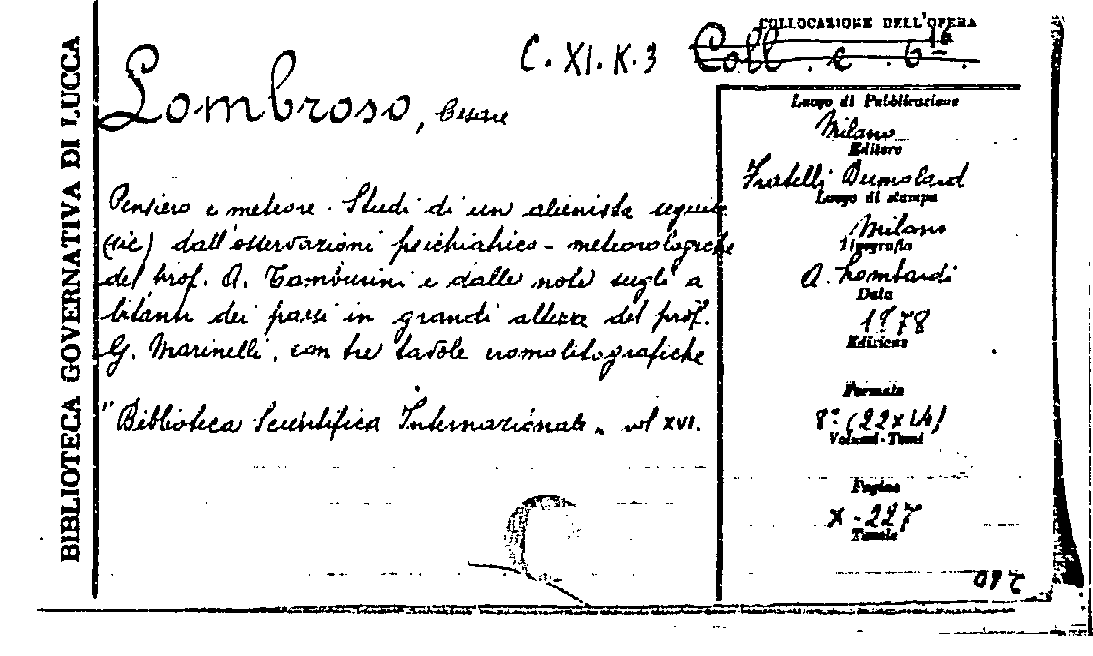 BIBLIOTECA GOVERNATIVA DI LUCCA
COLLOCAZIONE DELL'OPERA
C. XI. K. 3
Coll. c. 6
Lombroso, Cesare
Pensiero e meteore. Studi di un alienista seguite
(sic) dall'osservazioni psichiatrico - meteorologiche
del prof. A. Tamburini e dalle note sugli a
bitanti dei paesi in grandi altezze del prof.
G. Marinelli, con tre tavole cromolitografiche
"Biblioteca Scientifica Internazionale" vol XVI.
Luogo di Pubblicazione
Milano
Editore
Fratelli Dumolard
Luogo di stampa
Milano
Tipografia
A. Lombardi
Data
1878
Edizione
Formato
8° (22x14)
Volumi - Tomi
Pagine
X - 227
Tavole